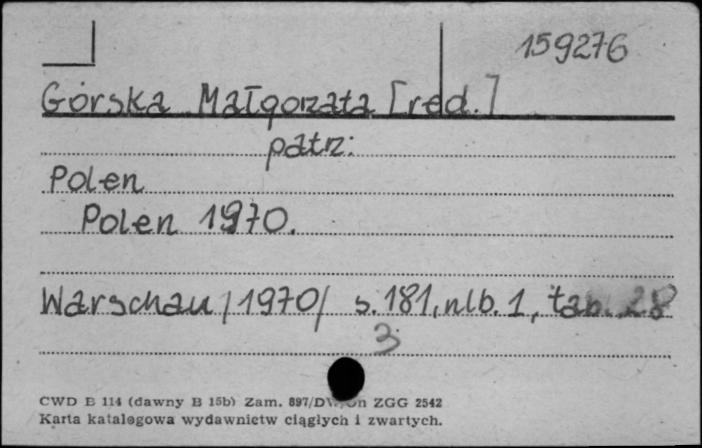 159276
Górska Małgorzata [red.]
patrz:
Polen
Polen 1970.
Warschau /1970/ s. 181, nlb. 1, tab. 28
3
CWD B 114 (dawny B 15b) Zam. 897/DW/On ZGG 2542
Karta katalogowa wydawnictw ciągłych i zwartych.